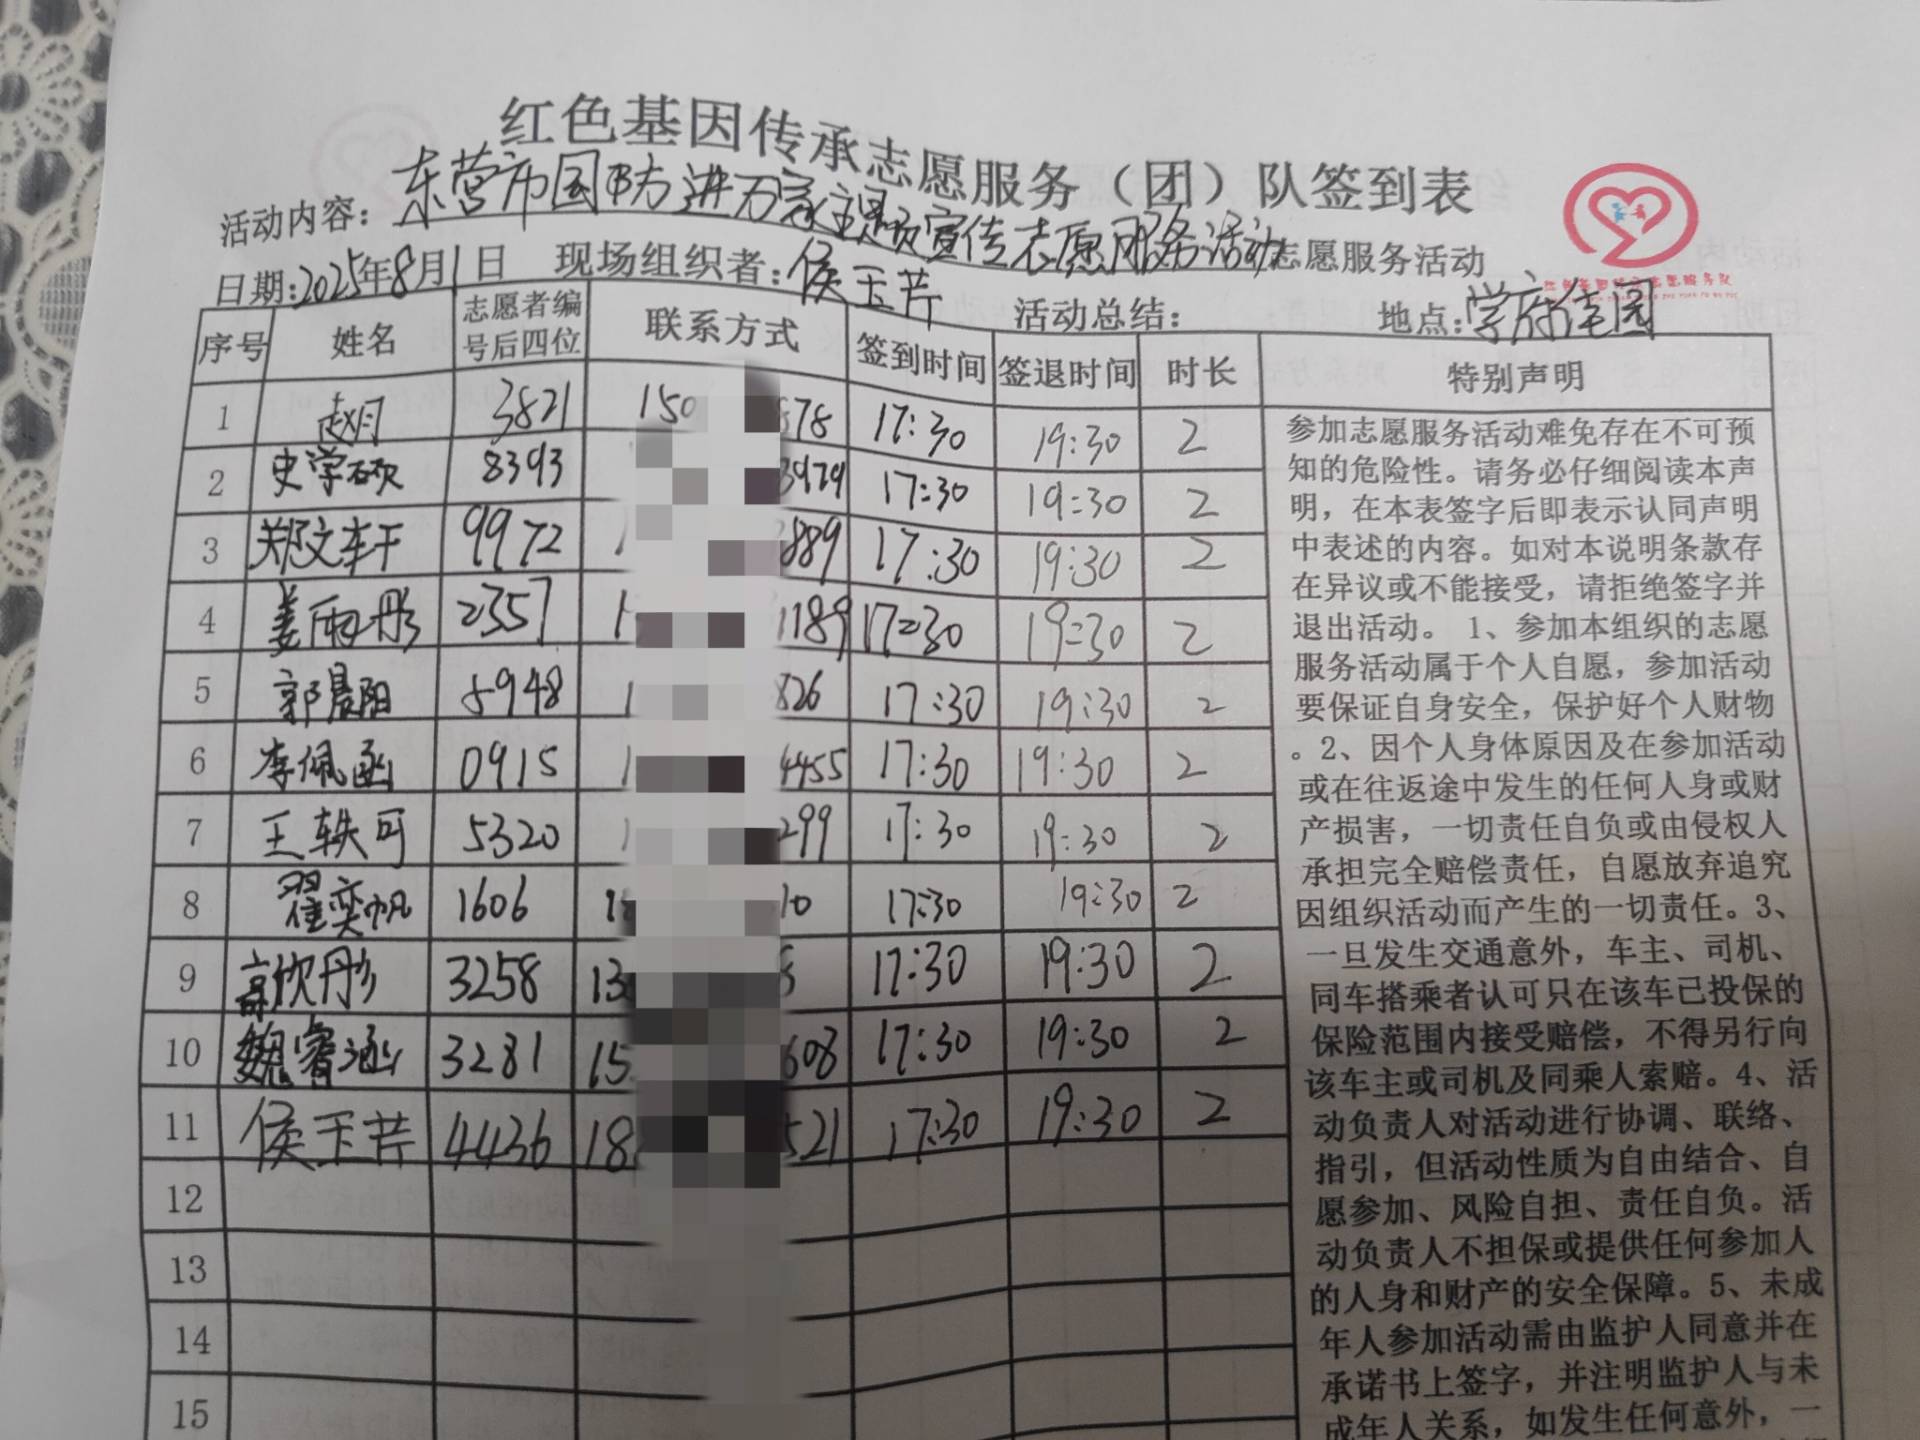 红色基因传承志愿服务（团）队签到表
活动内容：东营市国防进万家主题宣传志愿服务活动志愿服务活动
日期：2025年8月1日 现场组织者：侯玉芹 活动总结： 地点：学府佳园
序号 姓名 志愿者编号后四位 联系方式 签到时间 签退时间 时长 特别声明
1 赵月 3821 150 878 17:30 19:30 2
2 史学硕 8393 3979 17:30 19:30 2
3 郑文轩 9972 1 889 17:30 19:30 2
4 姜雨彤 2357 1 1189 17:30 19:30 2
5 郭晨阳 5948 1 826 17:30 19:30 2
6 李佩函 0915 1 4455 17:30 19:30 2
7 王轶可 5320 1 299 17:30 19:30 2
8 翟奕帆 1606 18 10 17:30 19:30 2
9 高欣彤 3258 13 8 17:30 19:30 2
10 魏睿涵 3281 15 608 17:30 19:30 2
11 侯玉芹 4436 18 521 17:30 19:30 2
12
13
14
15
参加志愿服务活动难免存在不可预
知的危险性。请务必仔细阅读本声
明，在本表签字后即表示认同声明
中表述的内容。如对本说明条款存
在异议或不能接受，请拒绝签字并
退出活动。 1、参加本组织的志愿
服务活动属于个人自愿，参加活动
要保证自身安全，保护好个人财物
。2、因个人身体原因及在参加活动
或在往返途中发生的任何人身或财
产损害，一切责任自负或由侵权人
承担完全赔偿责任，自愿放弃追究
因组织活动而产生的一切责任。3、
一旦发生交通意外，车主、司机、
同车搭乘者认可只在该车已投保的
保险范围内接受赔偿，不得另行向
该车主或司机及同乘人索赔。4、活
动负责人对活动进行协调、联络、
指引，但活动性质为自由结合、自
愿参加、风险自担、责任自负。活
动负责人不担保或提供任何参加人
的人身和财产的安全保障。5、未成
年人参加活动需由监护人同意并在
承诺书上签字，并注明监护人与未
成年人关系，如发生任何意外，一